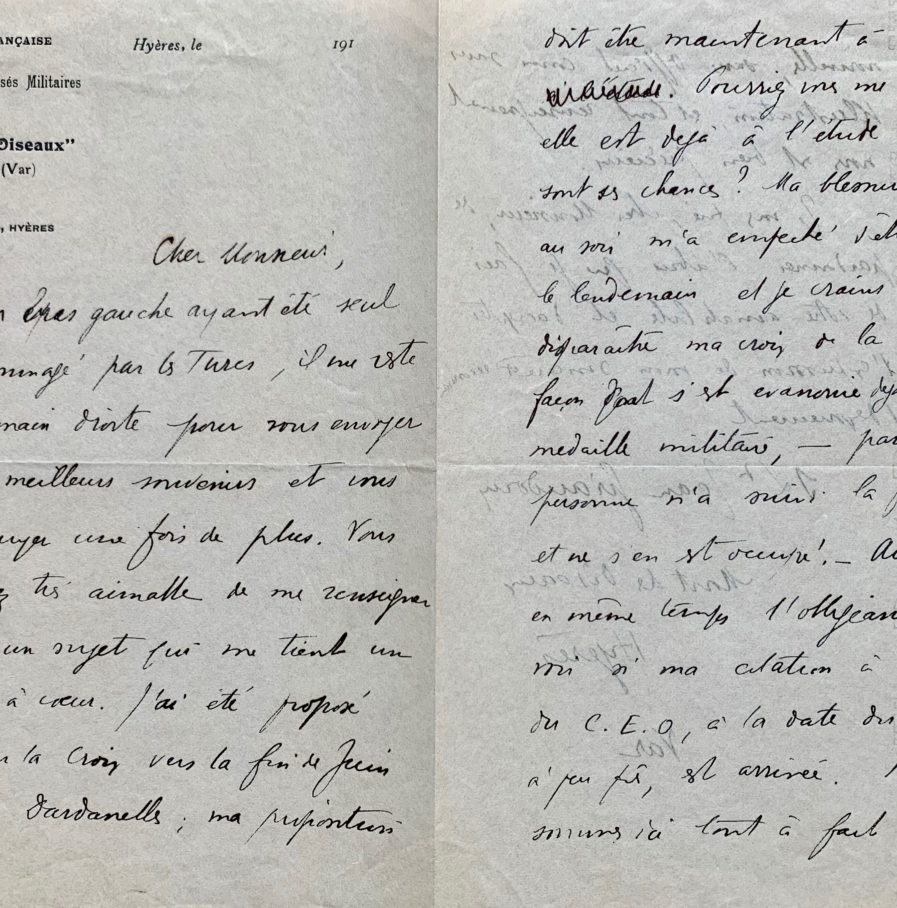 ANÇAISE
Hyères, le 191
sés Militaires
Oiseaux"
(Var)
, HYÈRES
Cher Monsieur,
bras gauche ayant été seul
mmagé par les Turcs, il me reste
main droite pour vous envoyer
meilleurs souvenirs et vous
uyer une fois de plus. Vous
ez très aimable de me renseigner
un sujet qui me tient un
à cœur. J'ai été proposé
la Croix vers la fin de Juin
Dardanelles ; ma proposition
doit être maintenant à
. Pourriez vous me
elle est dejà à l'étude
sont ses chances ? Ma blessur
au soir m'a empeché d'êt
le lendemain et je crains
disparaître ma croix de la
façon dont s'est evanouie dej
medaille militaire, — par
personne n'a suivi la
et ne s'en est occupé ! — A
en même temps l'obligean
vous si ma citation à
du C.E.O, à la date du
à peu près, est arrivée.
sommes ici tout à fait